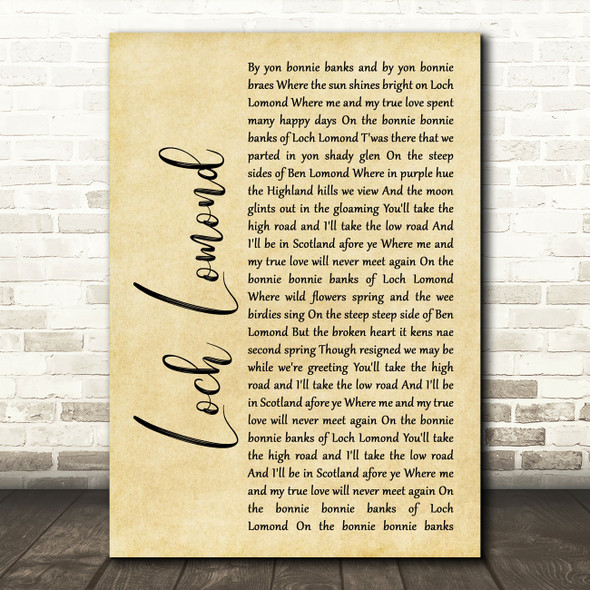 Loch Lomond
By yon bonnie banks and by yon bonnie
braes Where the sun shines bright on Loch
Lomond Where me and my true love spent
many happy days On the bonnie bonnie
banks of Loch Lomond T'was there that we
parted in yon shady glen On the steep
sides of Ben Lomond Where in purple hue
the Highland hills we view And the moon
glints out in the gloaming You'll take the
high road and I'll take the low road And
I'll be in Scotland afore ye Where me and
my true love will never meet again On the
bonnie bonnie banks of Loch Lomond
Where wild flowers spring and the wee
birdies sing On the steep steep side of Ben
Lomond But the broken heart it kens nae
second spring Though resigned we may be
while we're greeting You'll take the high
road and I'll take the low road And I'll be
in Scotland afore ye Where me and my true
love will never meet again On the bonnie
bonnie banks of Loch Lomond You'll take
the high road and I'll take the low road
And I'll be in Scotland afore ye Where me
and my true love will never meet again On
the bonnie bonnie banks of Loch
Lomond On the bonnie bonnie banks